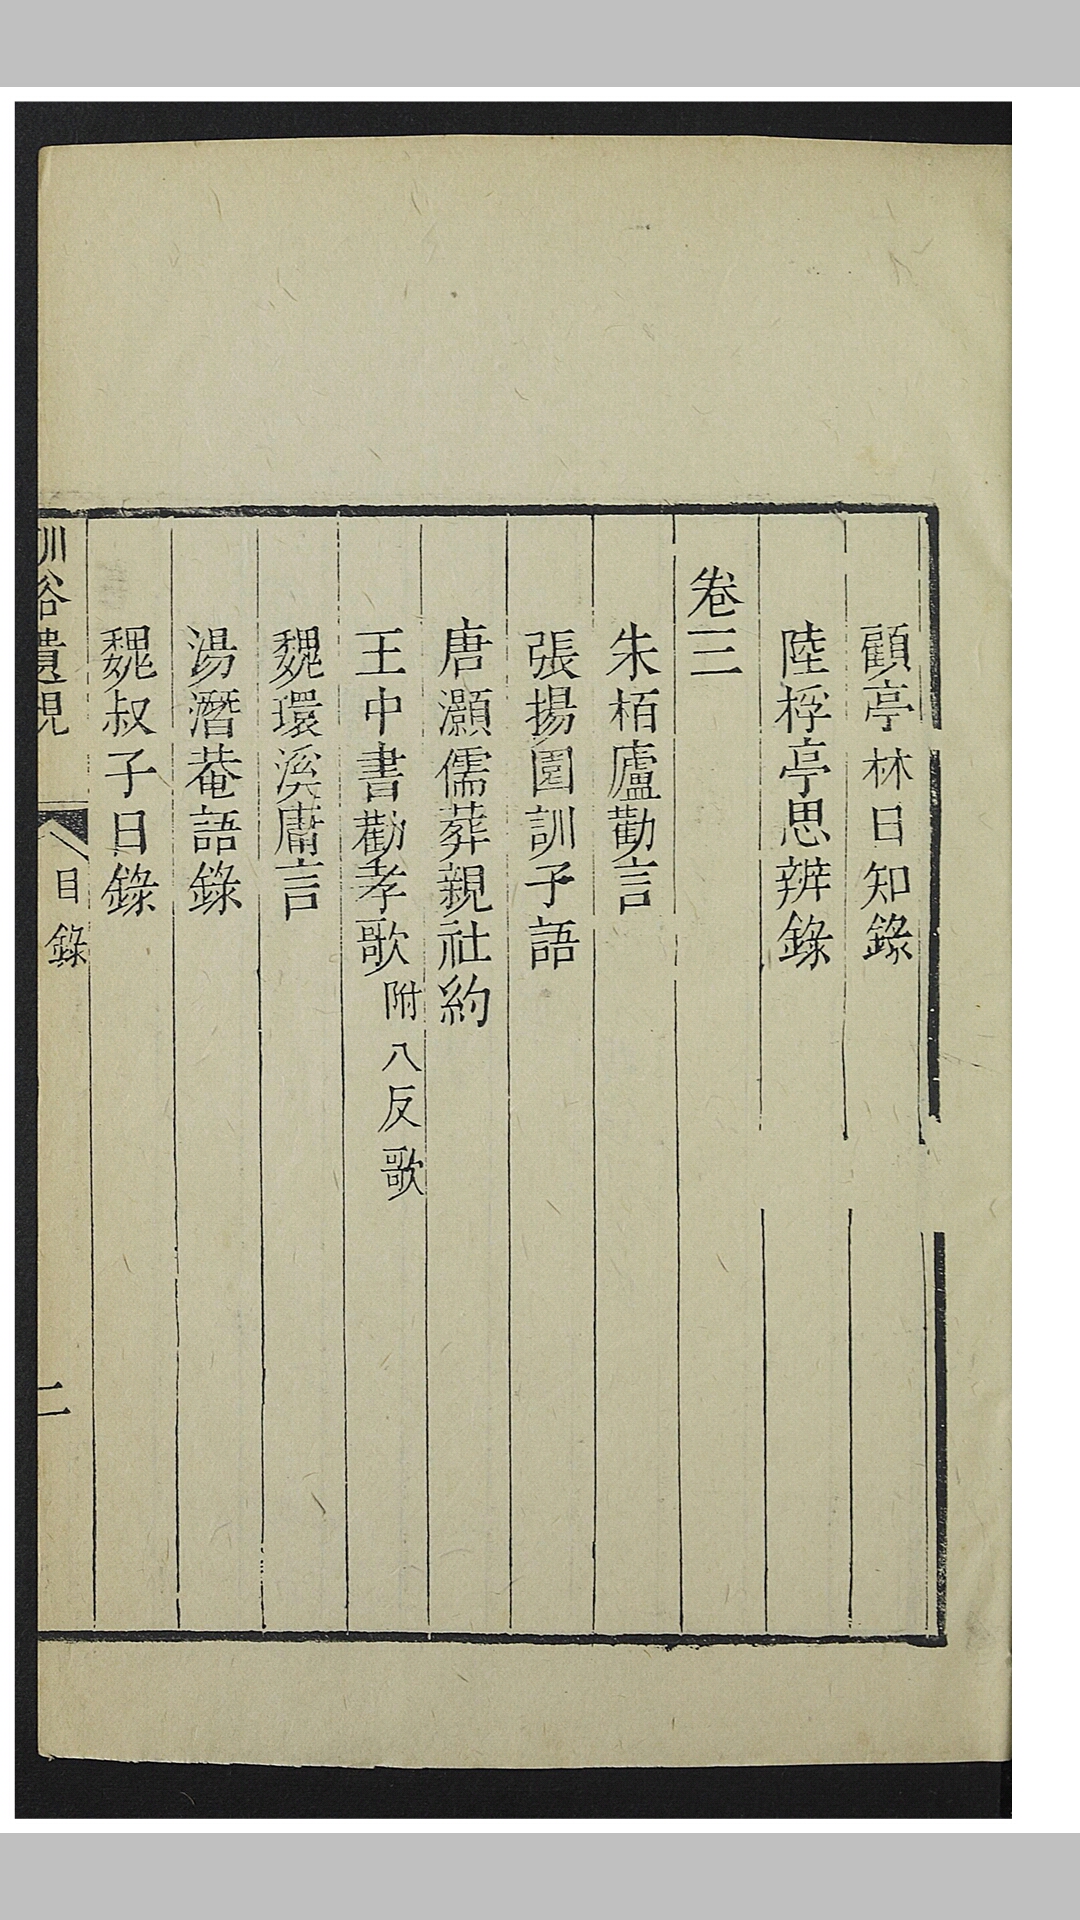 顧亭林日知錄
陸桴亭思辨錄
卷三
朱栢廬勸言
張揚園訓子語
唐灝儒葬親社約
王中書勸孝歌附八反歌
魏環溪庸言
湯潛菴語錄
魏叔子日錄
訓俗遺規
目錄
二